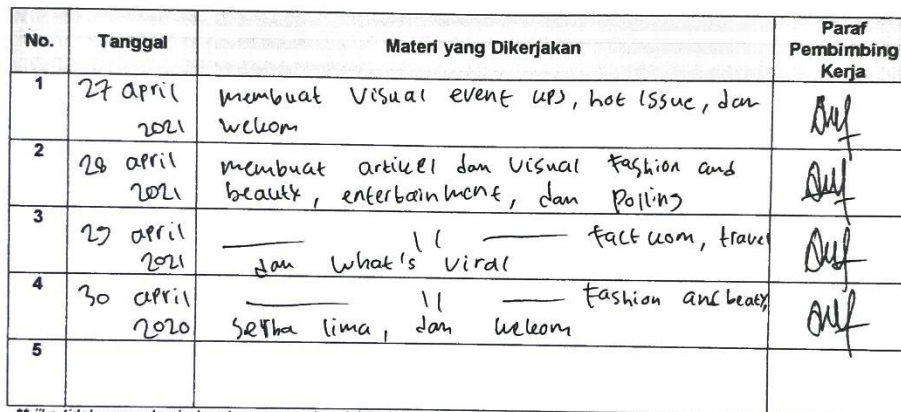 No. Tanggal Materi yang Dikerjakan Paraf
Pembimbing
Kerja
1 27 april membuat visual event ups, hot issue, dan
2021 wekom
2 28 april membuat artikel dan visual fashion and
2021 beauty, entertainment, dan polling
3 29 april —— 11 —— fact kom, travel
2021 dan what's viral
4 30 april —— 11 —— fashion and beaty,
2020 serba lima, dan wekom
5